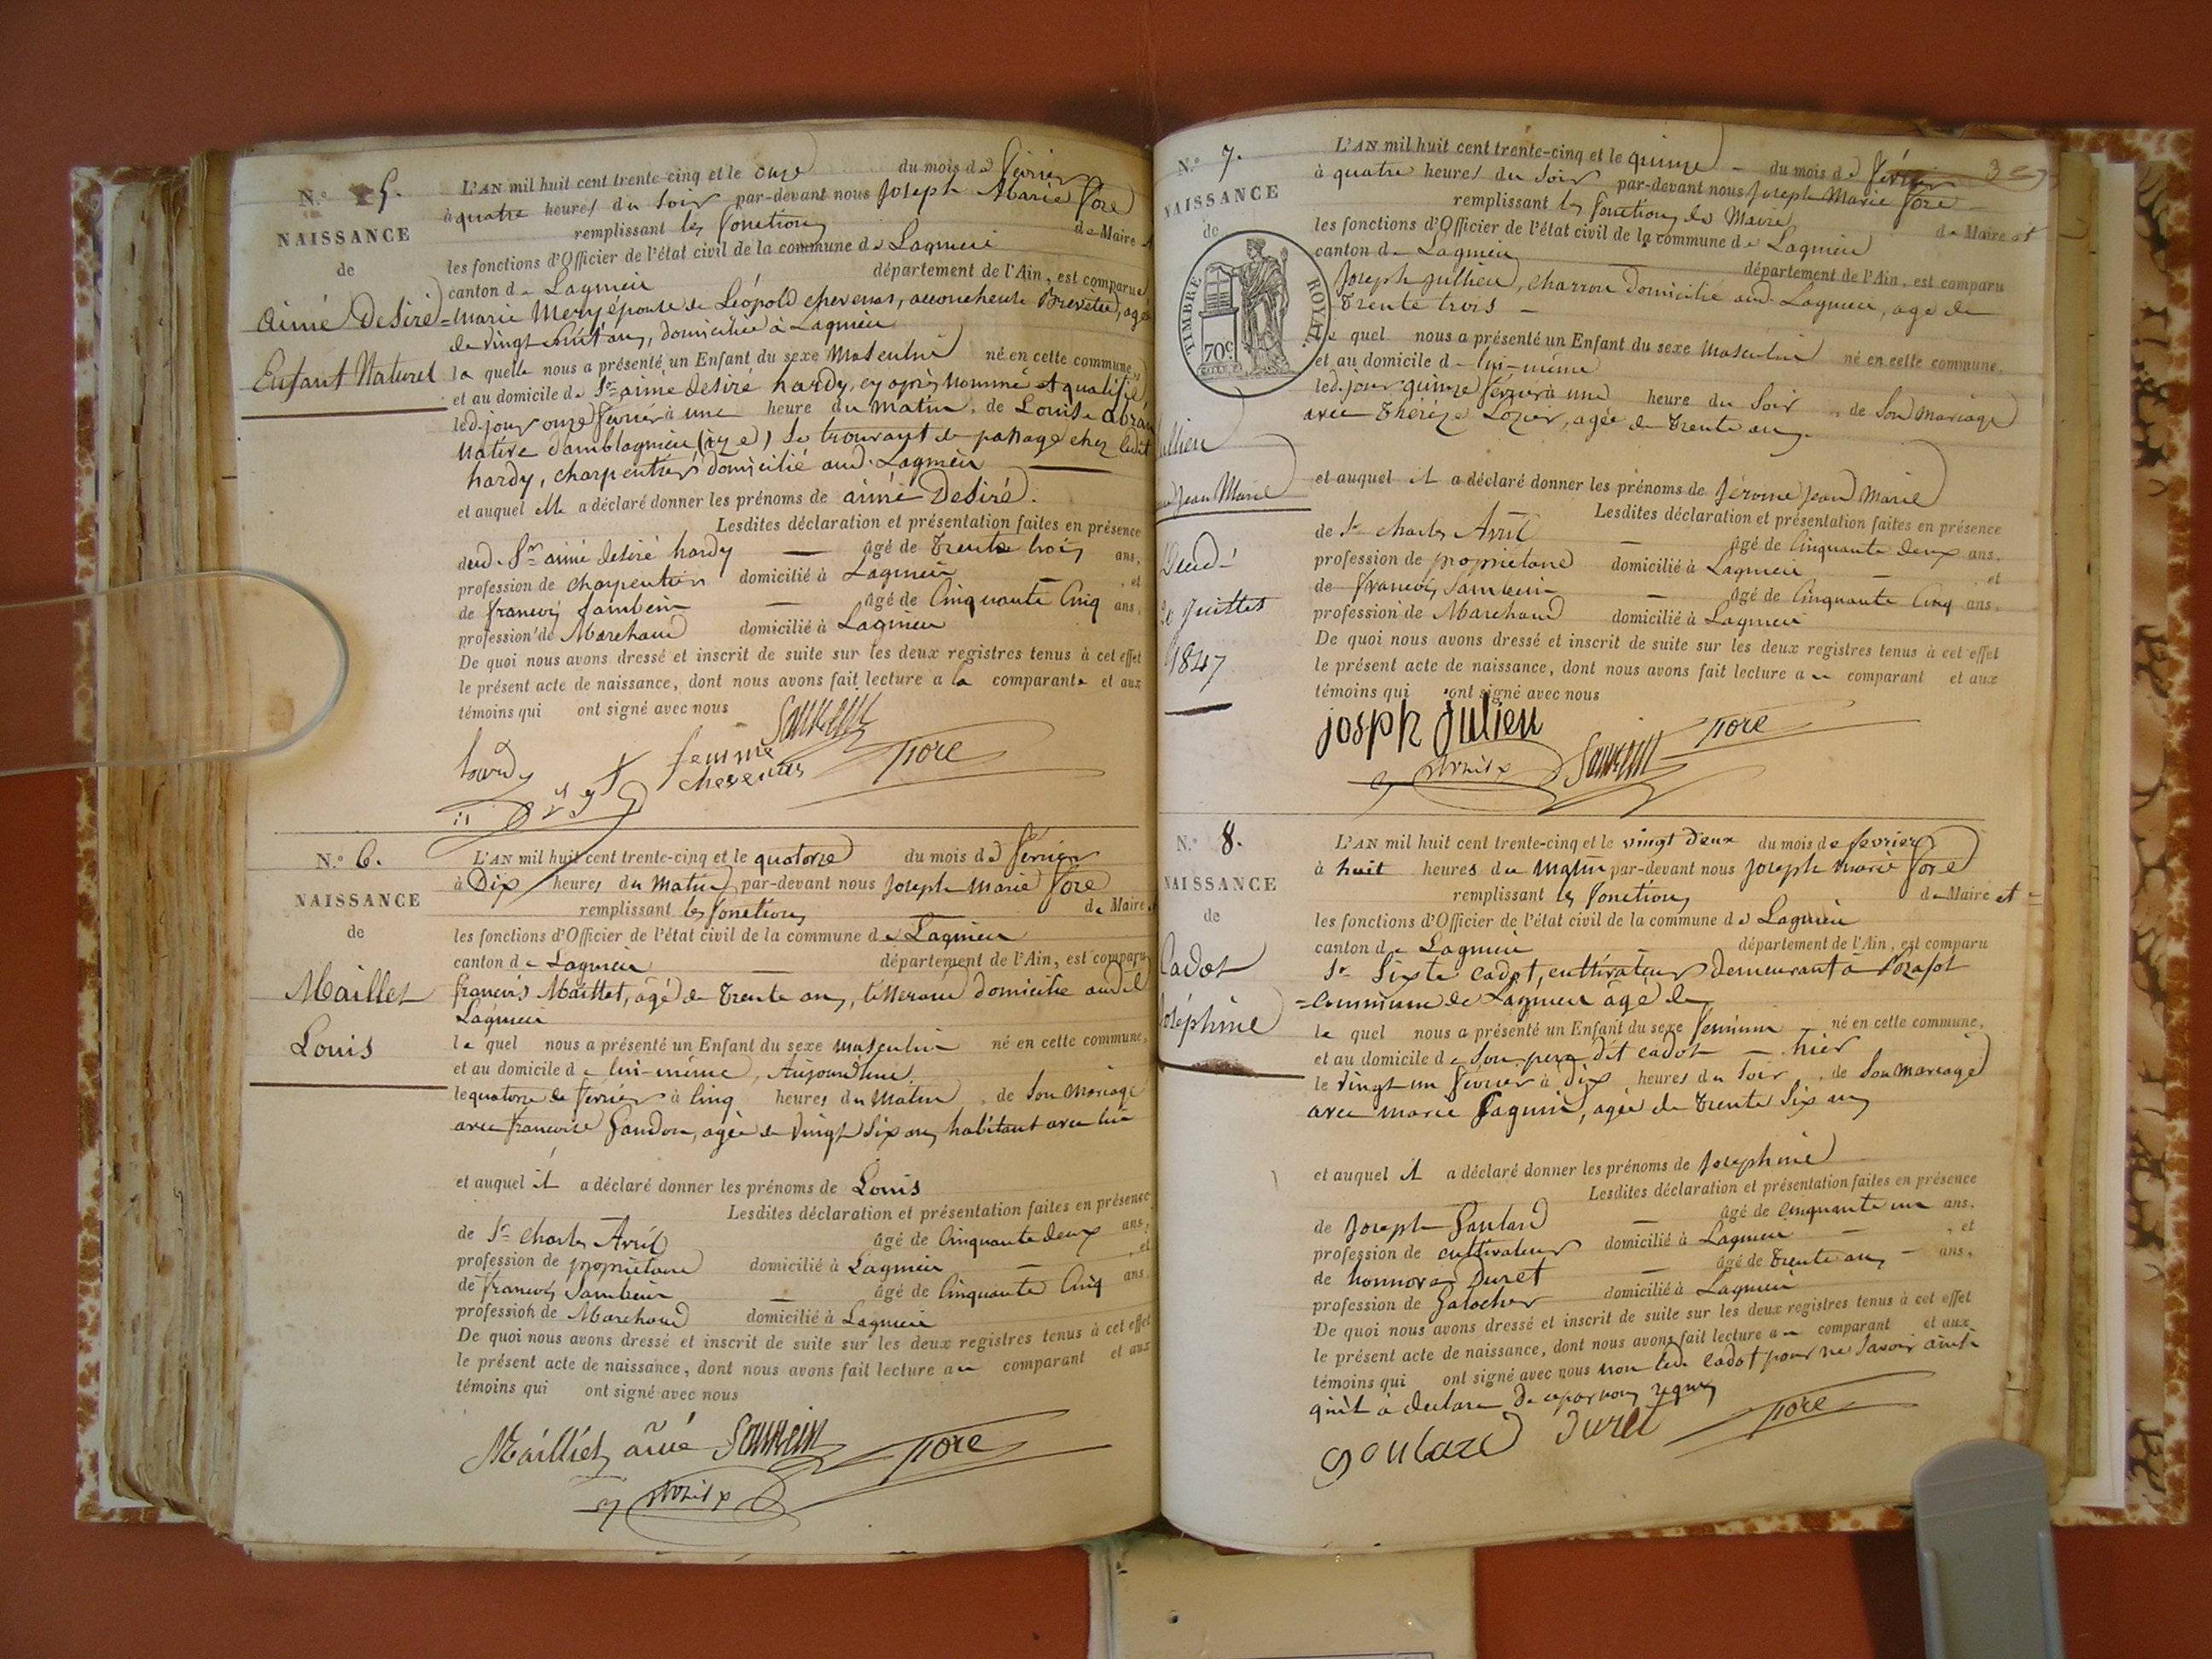 N.° 5.
NAISSANCE
de
Aimé Desiré
Enfant Naturel
L'AN mil huit cent trente-cinq et le onze du mois de février
à quatre heures du soir par-devant nous Joseph Marie Fore
remplissant les fonctions de Maire
les fonctions d'Officier de l'état civil de la commune de Lagnieu
canton de Lagnieu département de l'Ain, est comparue
Marie Mery épouse de Léopold chevenas, accoucheuse Brevetée, agée
de vingt huit ans, domiciliée à Lagnieu
la quelle nous a présenté un Enfant du sexe Masculin né en cette commune,
et au domicile de Sr aimé desiré hardy, cy après nommé et qualifié,
led. jour onze février à une heure du matin, de Louise
native d'amblagnieu (izere) se trouvant de passage chez ledit
hardy, charpentier domicilié aud. Lagnieu
et auquel elle a déclaré donner les prénoms de aimé Desiré.
Lesdites déclaration et présentation faites en présence
dud. Sr aimé desiré hardy âgé de trente trois ans,
profession de charpentier domicilié à Lagnieu, et
de françois Sambein âgé de Cinquante Cinq ans,
profession de Marchand domicilié à Lagnieu
De quoi nous avons dressé et inscrit de suite sur les deux registres tenus à cet effet
le présent acte de naissance, dont nous avons fait lecture a la comparante et aux
témoins qui ont signé avec nous
hardy femme chevenas Fore
N.° 6.
NAISSANCE
de
Maillet
Louis
L'AN mil huit cent trente-cinq et le quatorze du mois de février
à Dix heures du Matin par-devant nous Joseph Marie Fore
remplissant les fonctions de Maire
les fonctions d'Officier de l'état civil de la commune de Lagnieu
canton de Lagnieu département de l'Ain, est comparu
françois Maillet, âgé de trente ans, tisserand domicilié audit
Lagnieu
le quel nous a présenté un Enfant du sexe masculin né en cette commune,
et au domicile de lui-même, Aujourd'hui
le quatorze de février à cinq heures du Matin, de son mariage
avec françoise Gandon, agée de vingt six ans, habitant avec lui
et auquel il a déclaré donner les prénoms de Louis
Lesdites déclaration et présentation faites en présence
de Sr Charles Avril âgé de Cinquante deux ans,
profession de propriétaire domicilié à Lagnieu, et
de françois Sambein âgé de Cinquante Cinq ans
profession de Marchand domicilié à Lagnieu
De quoi nous avons dressé et inscrit de suite sur les deux registres tenus à cet effet
le présent acte de naissance, dont nous avons fait lecture au comparant et aux
témoins qui ont signé avec nous
Mailliet Fore
Avril
3
N.° 7.
NAISSANCE
de
TIMBRE ROYAL.
70c
Jean Marie
Déced
Juillet
1847
L'AN mil huit cent trente-cinq et le quinze du mois de février
à quatre heures du soir par-devant nous Joseph Marie Fore
remplissant les fonctions de Maire de Maire et
les fonctions d'Officier de l'état civil de la commune de Lagnieu
canton de Lagnieu département de l'Ain, est comparu
Joseph Jullien, charron domicilié aud. Lagnieu, agé de
trente trois
le quel nous a présenté un Enfant du sexe masculin né en cette commune,
et au domicile de lui-même
led. jour quinze février à une heure du soir, de son mariage
avec Thérèze Lozier, agée de trente ans.
et auquel il a déclaré donner les prénoms de Jérome Jean Marie
Lesdites déclaration et présentation faites en présence
de Sr charles Avril âgé de Cinquante deux ans,
profession de propriétaire domicilié à Lagnieu et
de françois Sambein âgé de Cinquante Cinq ans,
profession de Marchand domicilié à Lagnieu
De quoi nous avons dressé et inscrit de suite sur les deux registres tenus à cet effet
le présent acte de naissance, dont nous avons fait lecture au comparant et aux
témoins qui ont signé avec nous
josph julien Fore
Avril
N.° 8.
NAISSANCE
de
Cadot
Joséphine
L'AN mil huit cent trente-cinq et le vingt deux du mois de fevrier
à huit heures du matin par-devant nous Joseph marie Fore
remplissant les fonctions de Maire et
les fonctions d'Officier de l'état civil de la commune de Lagnieu
canton de Lagnieu département de l'Ain, est comparu
Sr Sixte Cadot, cultivateur demeurant à
commune de Lagnieu âgé de
le quel nous a présenté un Enfant du sexe féminin né en cette commune,
et au domicile de son pere dit cadot hier
le vingt un février à dix heures du soir, de son mariage
avec marie, agée de trente six ans
et auquel il a déclaré donner les prénoms de Josephine
Lesdites déclaration et présentation faites en présence
de Joseph Goulard âgé de cinquante un ans,
profession de cultivateur domicilié à Lagnieu, et
de honnoré Duret âgé de trente ans ans,
profession de Galocher domicilié à Lagnieu
De quoi nous avons dressé et inscrit de suite sur les deux registres tenus à cet effet
le présent acte de naissance, dont nous avons fait lecture au comparant et aux
témoins qui ont signé avec nous non led. Cadot pour ne savoir ainsi
qu'il a declaré de ce par nous requis
Goulard Duret Fore